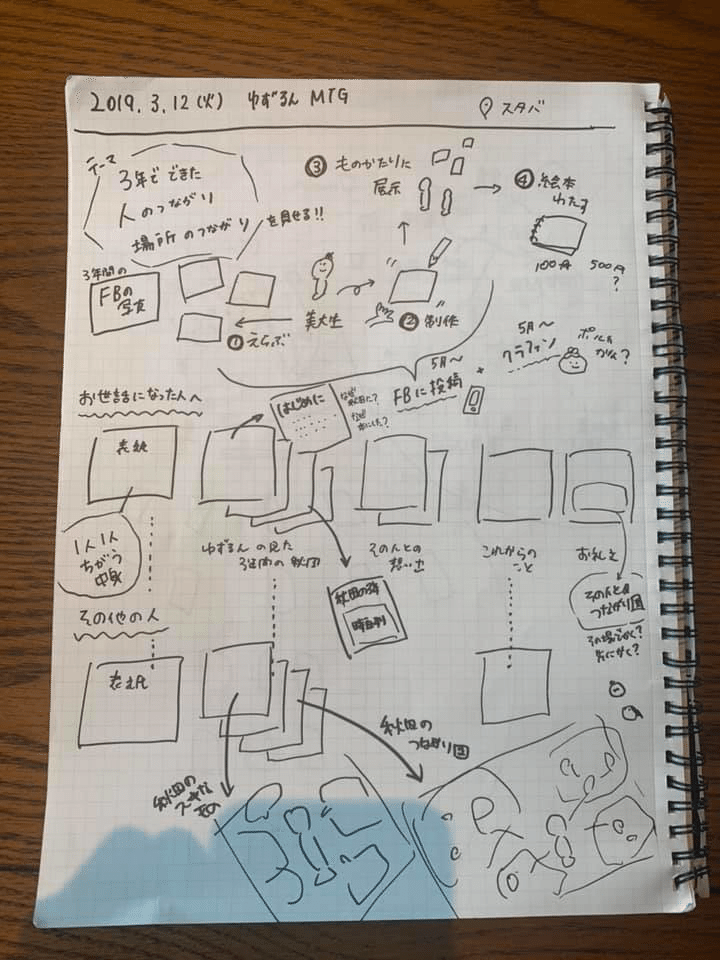 2019.3.12(火) ゆずるん MTG
スタバ
テーマ
3年でできた
人のつながり
場所のつながり を見せる!!
❸ ものがたりに
展示
❹ 絵本
わたす
100円 500円
?
3年間の
FBの
写真
❶えらぶ
美大生
❷ 制作
5月〜
クラファン
5月〜
FBに投稿
お世話になった人へ
はじめに
なぜ
なぜ
本にした?
表紙
1人1人
ちがう
中身
ゆずるんの見た
3年間の秋田
その人との
想い出
これからの
こと
お礼文
秋田の
時系列
その人との
つながり図
その場でかく?
先にかく?
その他の人
表紙
秋田の
つながり図
秋田の
スキな
もの